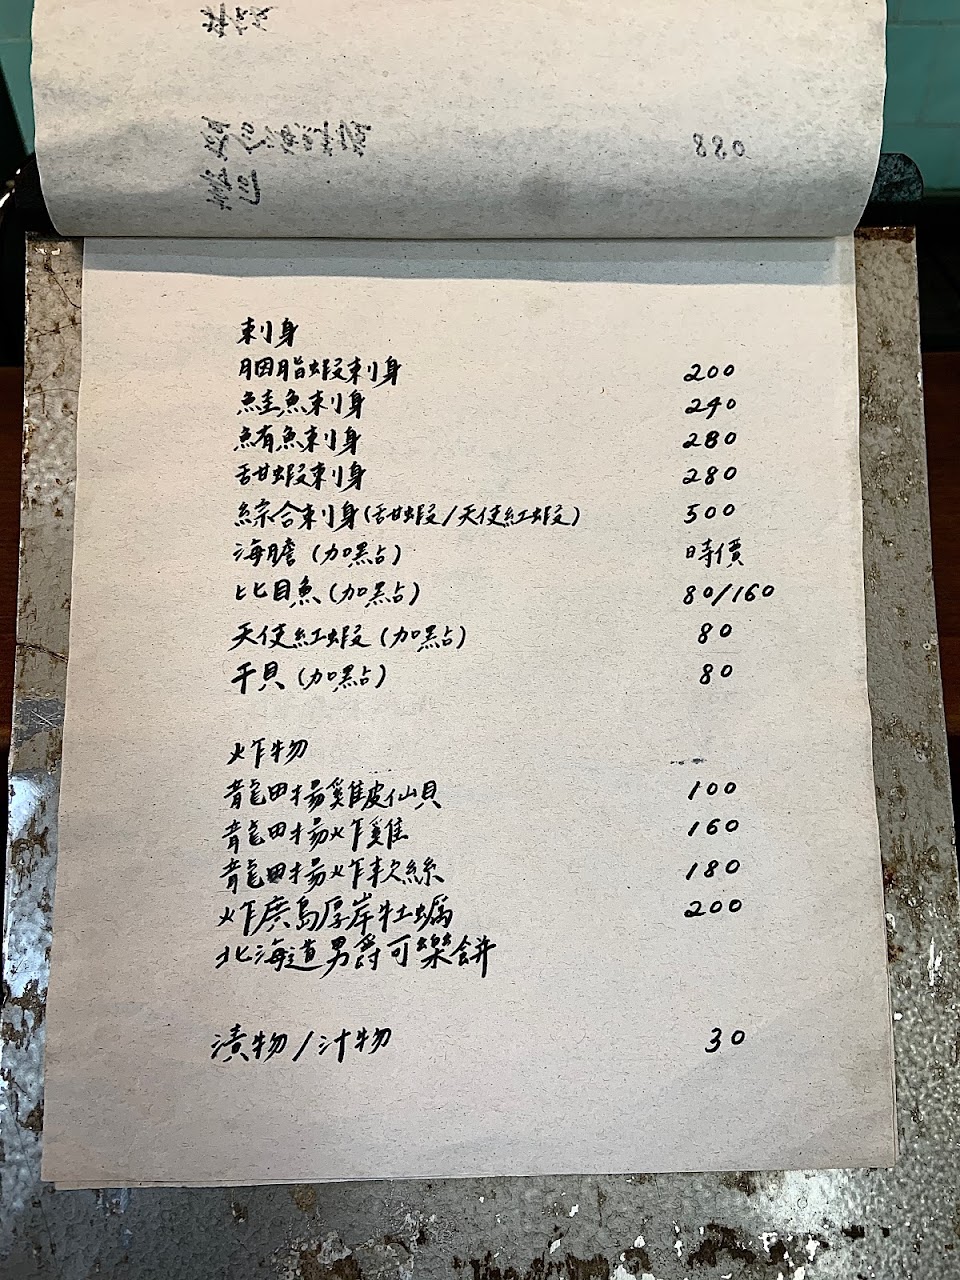 880
刺身
胭脂蝦刺身 200
鮭魚刺身 240
鮪魚刺身 280
甜蝦刺身 280
綜合刺身(甜蝦/天使紅蝦) 500
海膽(加點) 時價
比目魚(加點) 80/160
天使紅蝦(加點) 80
干貝(加點) 80
炸物
龍田揚雞皮仙貝 100
龍田揚炸雞 160
龍田揚炸軟絲 180
炸廣島厚岸牡蠣 200
北海道男爵可樂餅
漬物/汁物 30